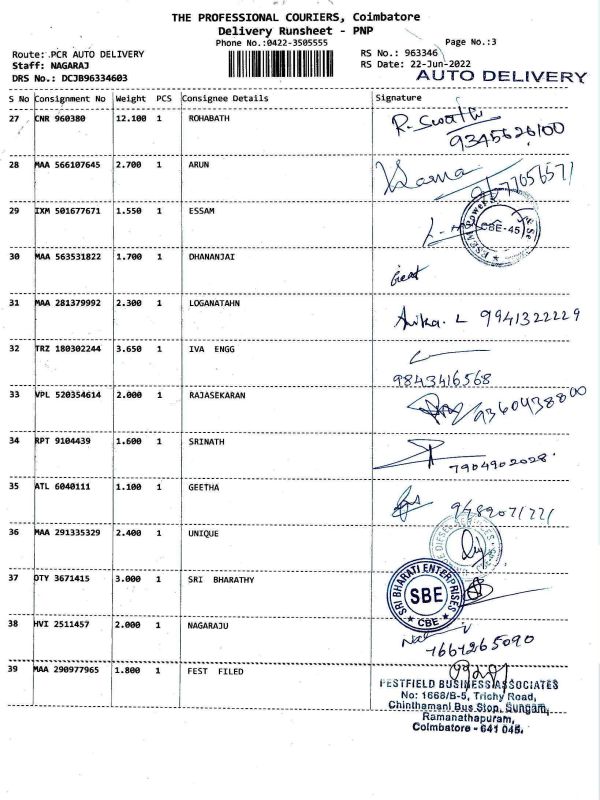 THE PROFESSIONAL COURIERS, Coimbatore
Delivery Runsheet - PNP
Phone No.:0422-3505555 Page No.:3
Route: PCR AUTO DELIVERY RS No.: 963346
Staff: NAGARAJ RS Date: 22-Jun-2022
DRS No.: DCJB96334603 AUTO DELIVERY
S No Consignment No Weight PCS Consignee Details Signature
27 CNR 960380 12.100 1 ROHABATH
9345626100
28 MAA 566107645 2.700 1 ARUN
29 IXM 501677671 1.550 1 ESSAM
CBE-45
30 MAA 563531822 1.700 1 DHANANJAI
31 MAA 281379992 2.300 1 LOGANATAHN
9941322229
32 TRZ 180302244 3.650 1 IVA ENGG
9843416568
33 VPL 520354614 2.000 1 RAJASEKARAN
9360438800
34 RPT 9104439 1.600 1 SRINATH
7904902028
35 ATL 6040111 1.100 1 GEETHA
36 MAA 291335329 2.400 1 UNIQUE
37 OTY 3671415 3.000 1 SRI BHARATHY
SRI BHARATI ENTERPRISES
SBE
CBE
38 HVI 2511457 2.000 1 NAGARAJU
7667265090
39 MAA 290977965 1.800 1 FEST FILED
PESTFIELD BUSINESS ASSOCIATES
No: 1668/B-5, Trichy Road,
Chinthamani Bus Stop, Sungam,
Ramanathapuram,
Coimbatore - 641 045.